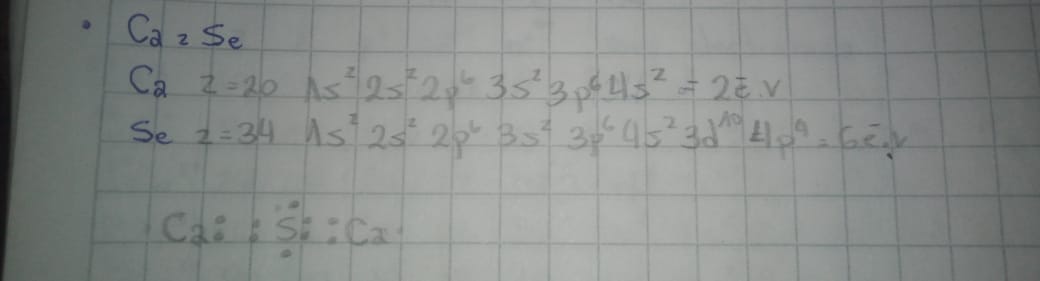 • Ca₂Se
Ca z=20 1s² 2s² 2p⁶ 3s² 3p⁶ 4s² = 2ē.v
Se z=34 1s² 2s² 2p⁶ 3s² 3p⁶ 4s² 3d¹⁰ 4p⁴ = 6ē.v
Ca: :S: :Ca